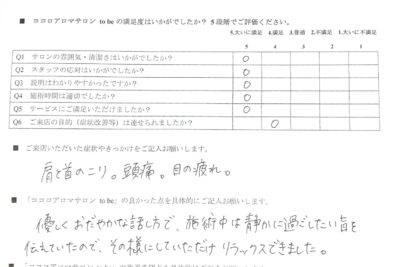 ■ ココロアロマサロン to be の満足度はいかがでしたか？ 5段階でご評価ください。
5.大いに満足 4.満足 3.普通 2.不満足 1.大いに不満足
5 4 3 2 1
Q1 サロンの雰囲気・清潔さはいかがでしたか？ ○
Q2 スタッフの応対はいかがでしたか？ ○
Q3 説明はわかりやすかったですか？ ○
Q4 施術時間は適切でしたか？ ○
Q5 サービスにご満足いただけましたか？ ○
Q6 ご来店の目的（症状改善等）は達せられましたか？ ○
■ ご来店いただいた症状やきっかけをご記入お願いします。
肩と首のこり。頭痛。目の疲れ。
■ 「ココロアロマサロン to be」の良かった点を具体的にご記入お願いします。
優しくおだやかな話し方で、施術中は静かに過ごしたい旨を
伝えていたので、その様にしていただけリラックスできました。